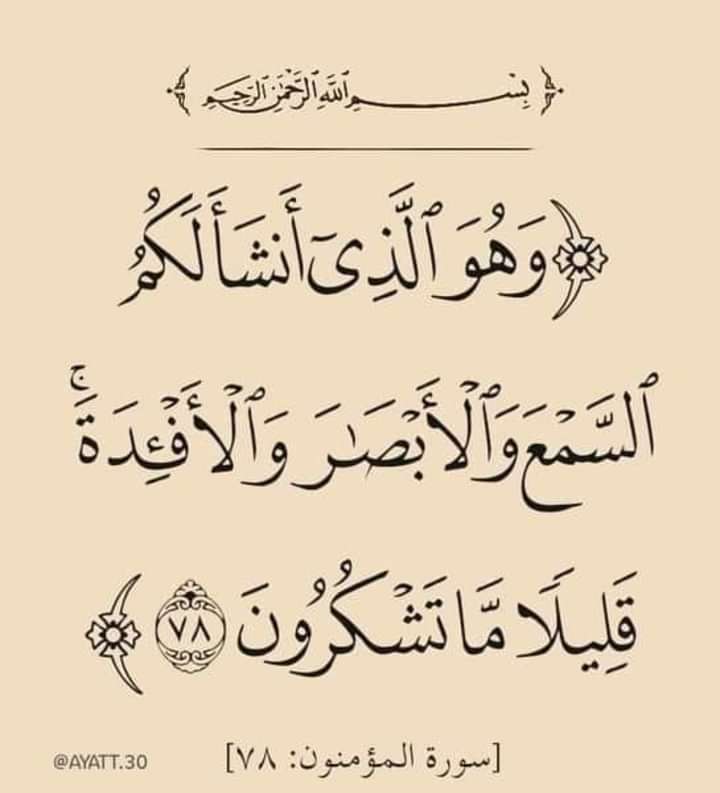 بِسْمِ ٱللَّهِ ٱلرَّحْمَٰنِ ٱلرَّحِيمِ
﴿وَهُوَ ٱلَّذِىٓ أَنشَأَ لَكُمُ
ٱلسَّمْعَ وَٱلْأَبْصَٰرَ وَٱلْأَفْـِٔدَةَ ۚ
قَلِيلًا مَّا تَشْكُرُونَ ٧٨﴾
[سورة المؤمنون: ٧٨]
@AYATT.30